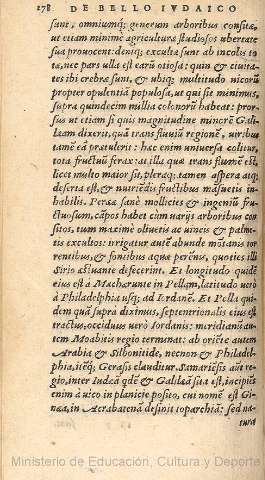 178 DE BELLO IVDAICO
sunt, omniumq; generum arboribus consitæ,
ut etiam minimè agriculturæ studiosos ubertate
sua prouocent: deniq; excultæ sunt ab incolis to
tæ, nec pars ulla est earū otiosa: quin & ciuita
tes ibi crebræ sunt, & ubiq; multitudo uicorū
propter opulentiā populosa, ut qui sit minimus,
supra quindecim millia colonorū habeat: pror
sus ut etiam si quis magnitudine minorē Gali
læam dixerit, quā trans fluuiū regionē, uiribus
tamē eā prætulerit: hæc enim uniuersa colitur,
tota fructuū ferax: at illa quæ trans flumē est,
licet multo maior sit, pleraq; tamen aspera atq;
deserta est, & nutriēdis fructibus māsuetis in
habilis. Peræa sanè mollicies & ingeniū fru
ctuosum, cāpos habet cum uarijs arboribus con
sitos, tum maximè oliuetis ac uineis & palme
tis excultos: irrigatur autē abunde mōtanis tor
rentibus, & fontibus aquæ perēnis, quoties illi
Sirio æstuante defecerint. Et longitudo quidē
eius est à Machærunte in Pellam, latitudo uerò
à Philadelphia usq; ad Iordanē. Et Pella qui
dem quā supra diximus, septentrionalis eius est
tractus, occiduus uerò Iordanis: meridianū au
tem Moabitis regio terminat: ab oriēte autem
Arabia & Silbonitide, necnon & Philadel
phia, itēq; Gerasis clauditur. Samariēsis autē re
gio, inter Iudæā qdē & Galilæā sita est, incipiēs
enim à uico in planicie posito, cui nomē est Gi
næa, in Acrabatenā desinit toparchiā: sed na-
tura
Ministerio de Educación, Cultura y Deporte